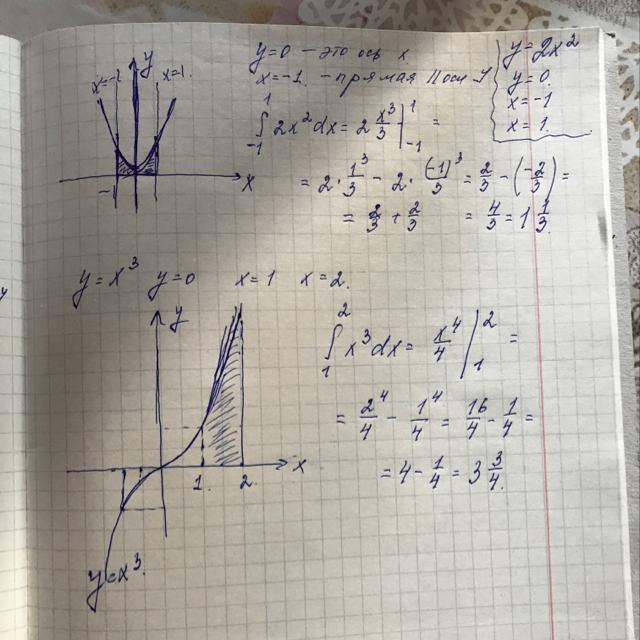 y=0 – это ось x.
x=-1. – прямая || оси y
y=2x²
y=0.
x=-1
x=1.
y
x=-1
x=1.
x
-1
∫₋₁¹ 2x²dx = 2 x³/3 |₋₁¹ =
= 2·1³/3 - 2·(-1)³/3 = 2/3 - (-2/3) =
= 2/3 + 2/3 = 4/3 = 1 1/3.
y=x³ y=0 x=1 x=2.
y
x
1.
2.
y=x³.
∫₁² x³dx = x⁴/4 |₁² =
= 2⁴/4 - 1⁴/4 = 16/4 - 1/4 =
= 4 - 1/4 = 3 3/4.